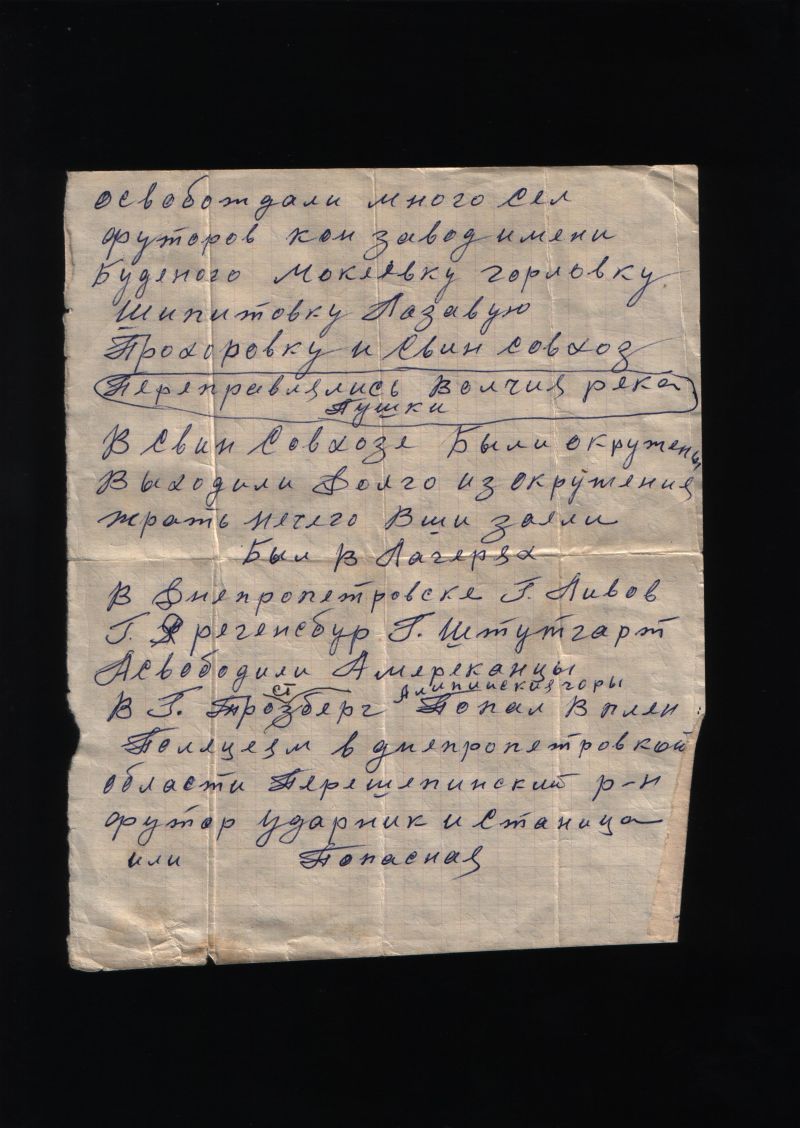 освобождали много сел
футоров кон завод имени
Буденого Мокеевку горловку
Шипитовку Лазавую
Прохоровку и Свин совхоз
Переправлялись Волчия река
Пушки
В Свин Совхозе Были окружены
Выходили Долго из окружения
жрать нечего Вши заели
Был в Лагерях
В Днепропетровске Г. Ливов
Г. Регенсбур Г. Штутгарт
Асвободили Амереканцы
ст Алипийския горы
В Г. Трозберг Попал В плен
Полецеям в днепропетровкой
области Перешепинский р-н
футор ударник и Станица
или Попасная